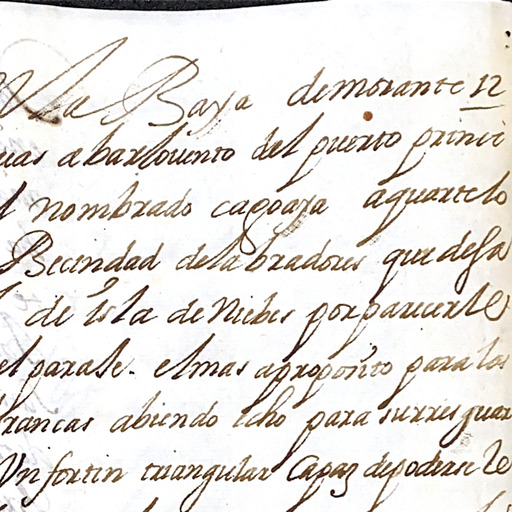 Vla Baya demorante 12
uas abarlouento del puerto princi
l nombrado cagoaya aquartelo
Becindad delabradores que desa
l de ysla de Niebes porparecerle
el parale. elmas aproposito para las
francas abiendo echo para surresguar
Vn fortin triangular Capaz depoderse le